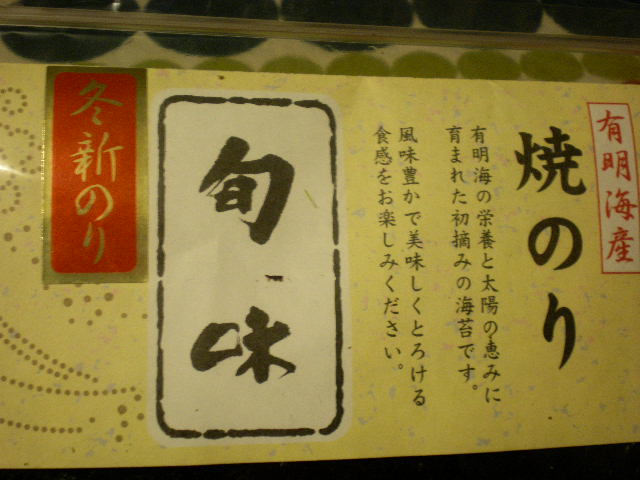 有明海産
焼のり
有明海の栄養と太陽の恵みに
育まれた初摘みの海苔です。
風味豊かで美味しくとろける
食感をお楽しみください。
旬味
冬新のり